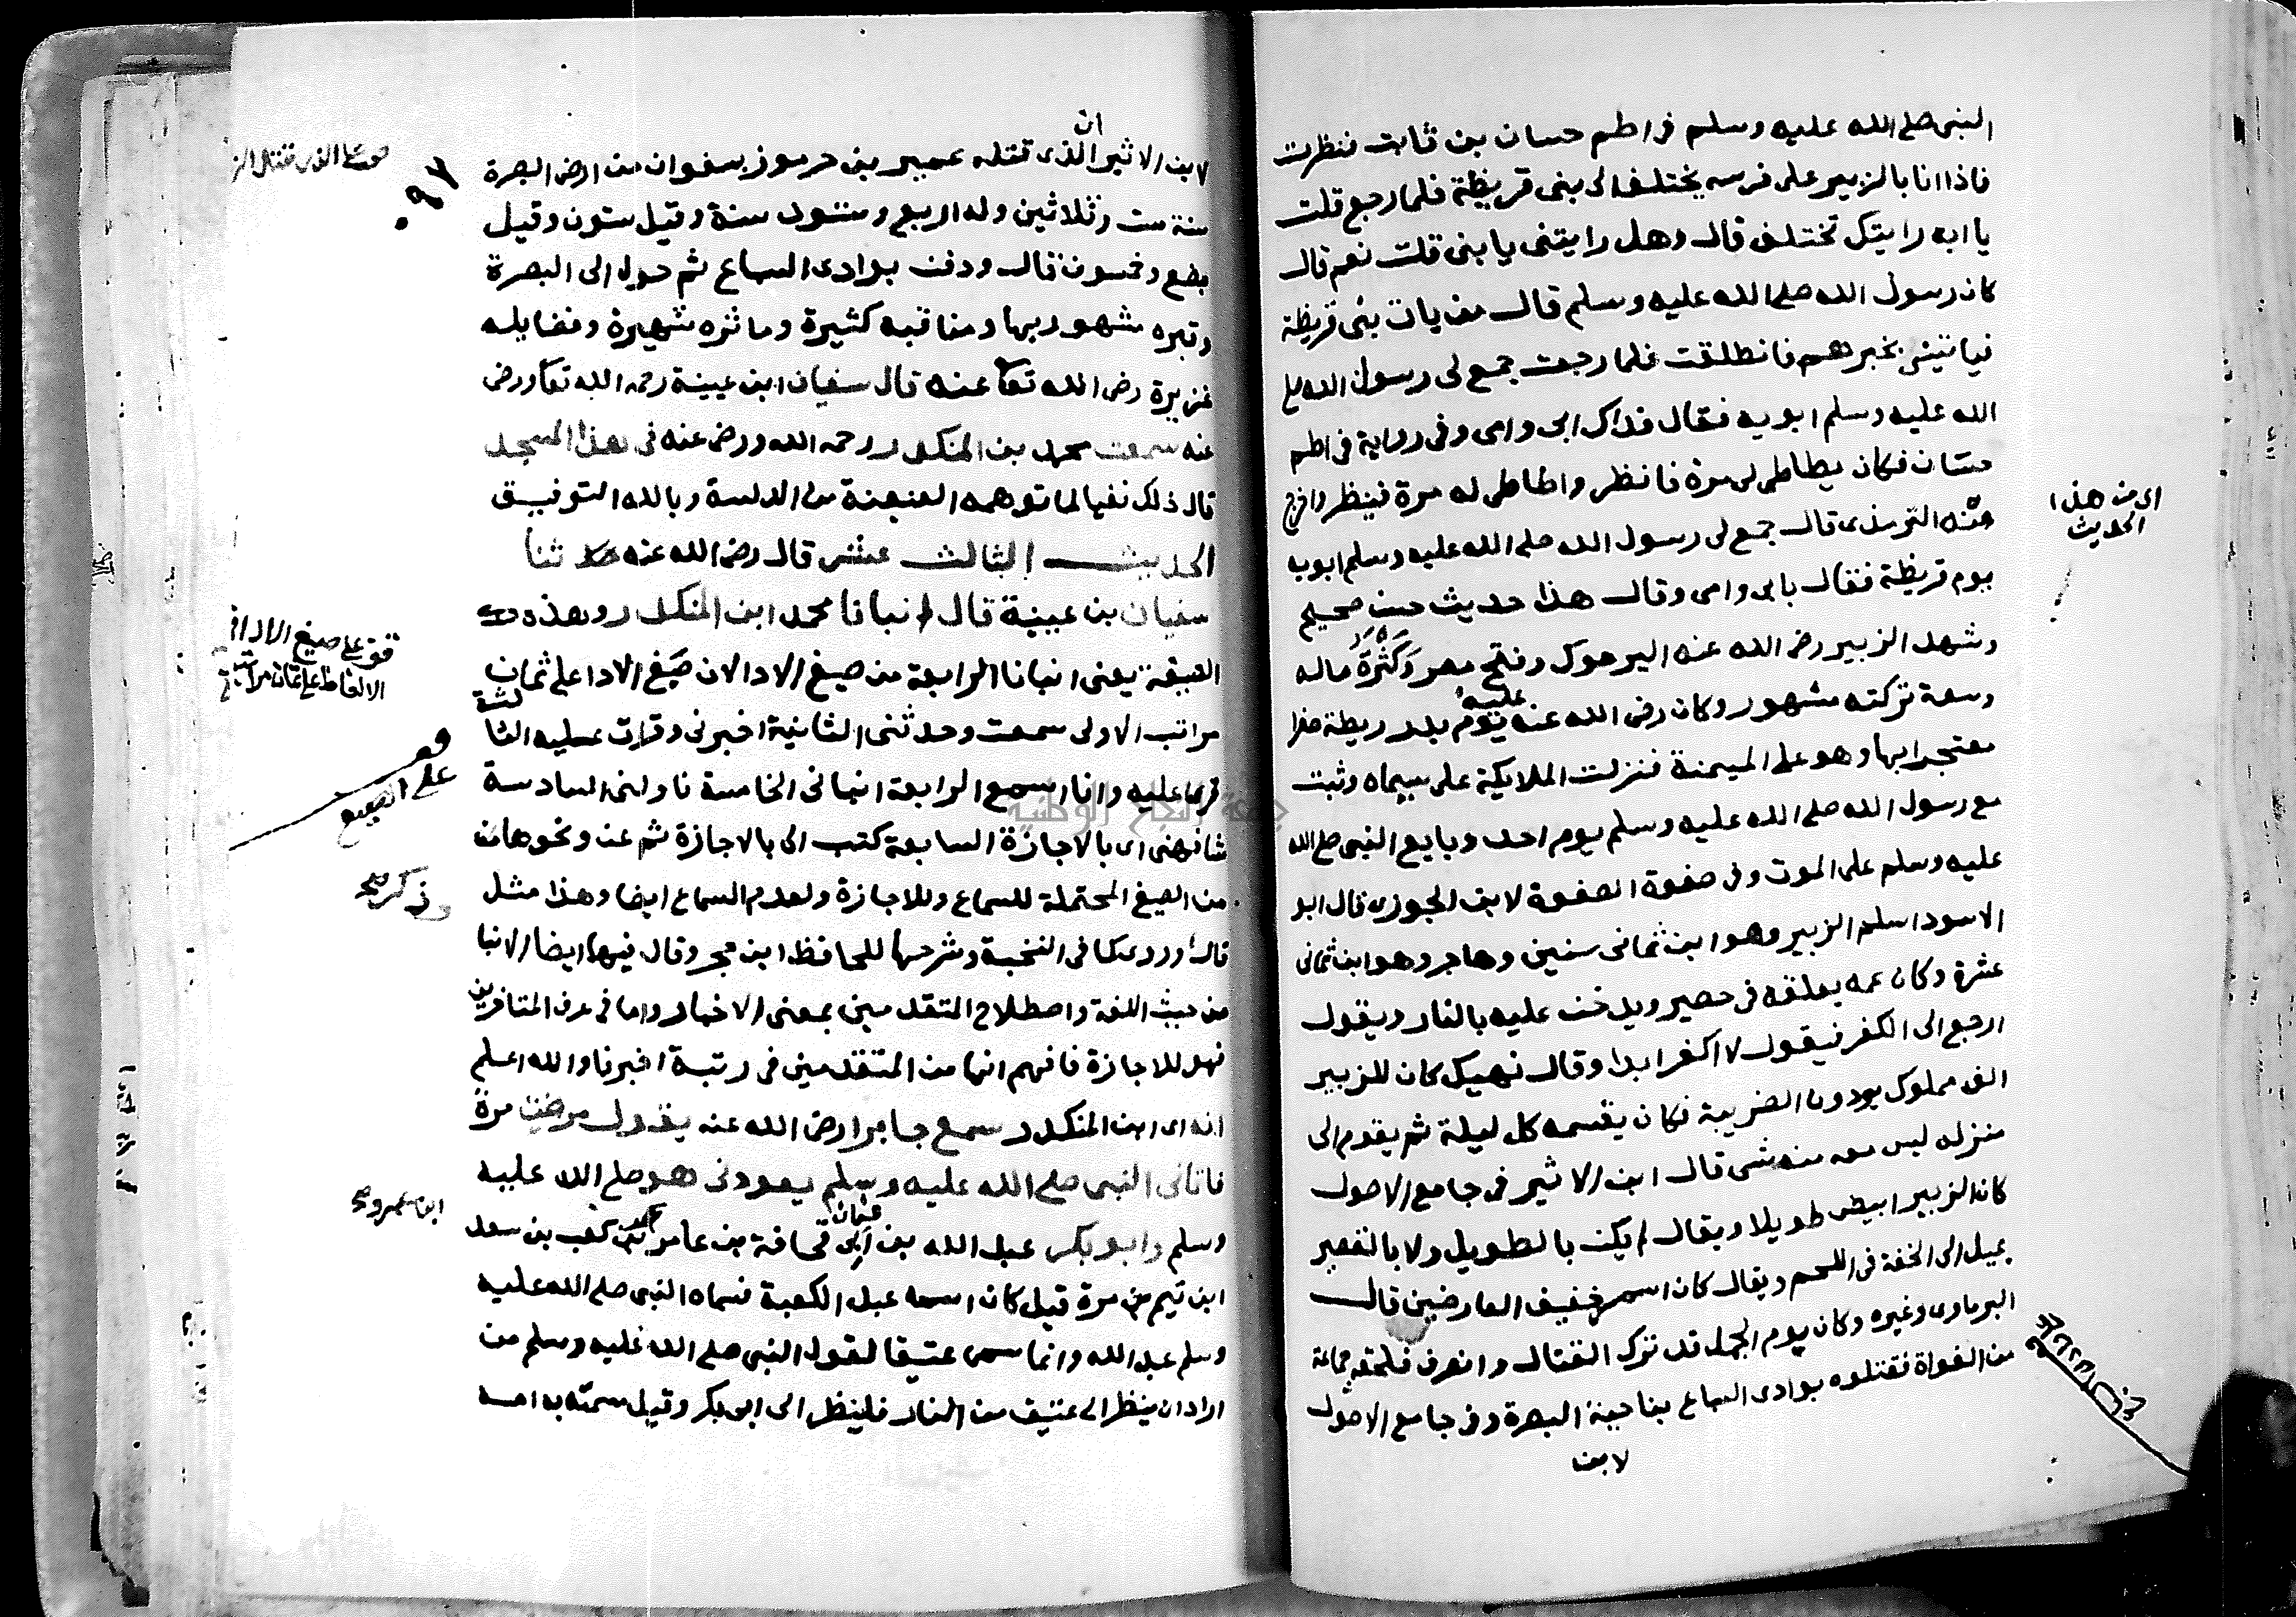 النبى صلى الله عليه وسلم فى اطم حسان بن ثابت فنظرت
فاذا انا بالزبير على فرسه يختلف الى بنى قريظة فلما رجع قلت
يا ابه رايتك تختلف قال وهل رايتنى يا بنى قلت نعم قال
كان رسول الله صلى الله عليه وسلم قال من يات بنى قريظة
فياتينى بخبرهم فانطلقت فلما رجعت جمع لى رسول الله صلى
الله عليه وسلم ابويه فقال فداك ابى وامى وفى رواية فى اطم
حسّان فكان يطاطى لى مرة فانظر واطاطى له مرة فينظر واخرج
منه الترمذى قال جمع لى رسول الله صلى الله عليه وسلم ابويه
يوم قريظة فقال بابى وامى وقال هذا حديث حسن صحيح
وشهد الزبير رضى الله عنه اليرموك وفتح مصر وَكَثْرَةُ ماله
وسعة تركته مشهور وكان رضى الله عنه عليه يوم بدر ريطة صفرا
معتجرا بها وهو على الميمنة فنزلت الملايكة على سيماه وثبت
مع رسول الله صلى الله عليه وسلم يوم احد وبايع النبى صلى الله
عليه وسلم على الموت وفى صفوة الصفوة لابن الجوزى قال ابو
الاسود اسلم الزبير وهو ابن ثمانى سنين وهاجر وهو ابن ثمانى
عشرة وكان عمه يعلقه فى حصير ويدخن عليه بالنار ويقول
ارجع الى الكفر فيقول لا اكفر ابدا وقال نهيك كان للزبير
الف مملوك يودون الضريبة فكان يقسمه كل ليلة ثم يقدم الى
منزله ليس معه منه شى قال ابن الاثير فى جامع الاصول
كان الزبير ابيض طويلا ويقال لم يكن بالطويل ولا بالقصير
يميل الى الخفة فى اللحم ويقال كان اسمر خفيف العارضين قال
البرماوى وغيره وكان يوم الجمل قد ترك القتال وانصرف فلحقه جماعة
من الغواة فقتلوه بوادى السباع بناحية البصرة وفى جامع الاصول
لابن
اى من هذا
الحديث
لابن الاثير ان الذى قتله عمير بن جرموز بسفوان من ارض البصرة
سنة ست وثلاثين وله اربع وستون سنة وقيل ستون وقيل
بضع وخمسون قال ودفن بوادى السباع ثم حول الى البصرة
وقبره مشهور بها ومناقبه كثيرة وماثره شهيرة وفضايله
غزيرة رضى الله تعا عنه قال سفيان ابن عيينة رحمه الله تعا ورضى
عنه سمعت محمد بن المنكدر رحمه الله ورضى عنه فى هذا المسجد
قال ذلك نفيا لما توهمه العنعنة من الدلسة وبالله التوفيق
الحديث الثالث عشر قال رضى الله عنه حدثنا
سفيان بن عيينة قال انبانا محمد ابن المنكدر وهذه
الصيغة يعنى انبانا الرابعة من صيغ الادا لان صِيَغ الادا على ثمان
مراتب الاولى سمعت وحدثنى الثانية اخبرنى وقرات عليه الثالثة
قرى عليه وانا اسمع الرابعة انبانى الخامسة ناولنى السادسة
شافهنى اى بالاجازة السابعة كتب الى بالاجازة ثم عن ونحوها
من الصيغ المحتملة للسماع وللاجازة ولعدم السماع ايضا وهذا مثل
قال وروى كما فى النخبة وشرحها للحافظ ابن حجر وقال فيها ايضا الانبا
من حيث اللغة واصطلاح المتقدمين بمعنى الاخبار واما فى عرف المتاخرين
فهو للاجازة فافهم انها من المتقدمين فى رتبة اخبرنا والله اعلم
انه اى ابن المنكدر سمع جابرا رضى الله عنه يقول مرضت مرة
فاتانى النبى صلى الله عليه وسلم يعودنى هو صلى الله عليه
وسلم وابو بكر عبد الله بن ابى قحافة عثمان بن عامر بن عمرو بن كعب بن سعد
ابن تيم بن مرة قيل كان اسمه عبد الكعبة فسماه النبى صلى الله عليه
وسلم عبد الله وانما سمى عتيقا لقول النبى صلى الله عليه وسلم من
اراد ان ينظر الى عتيق من النار فلينظر الى ابى بكر وقيل سمته به امه
٠٩٧
قف على صيغ الادا
الالفاظ على ثمان مراتب
قف
على الصيغ
ابن عمرو
جامعة النجاح الوطنية